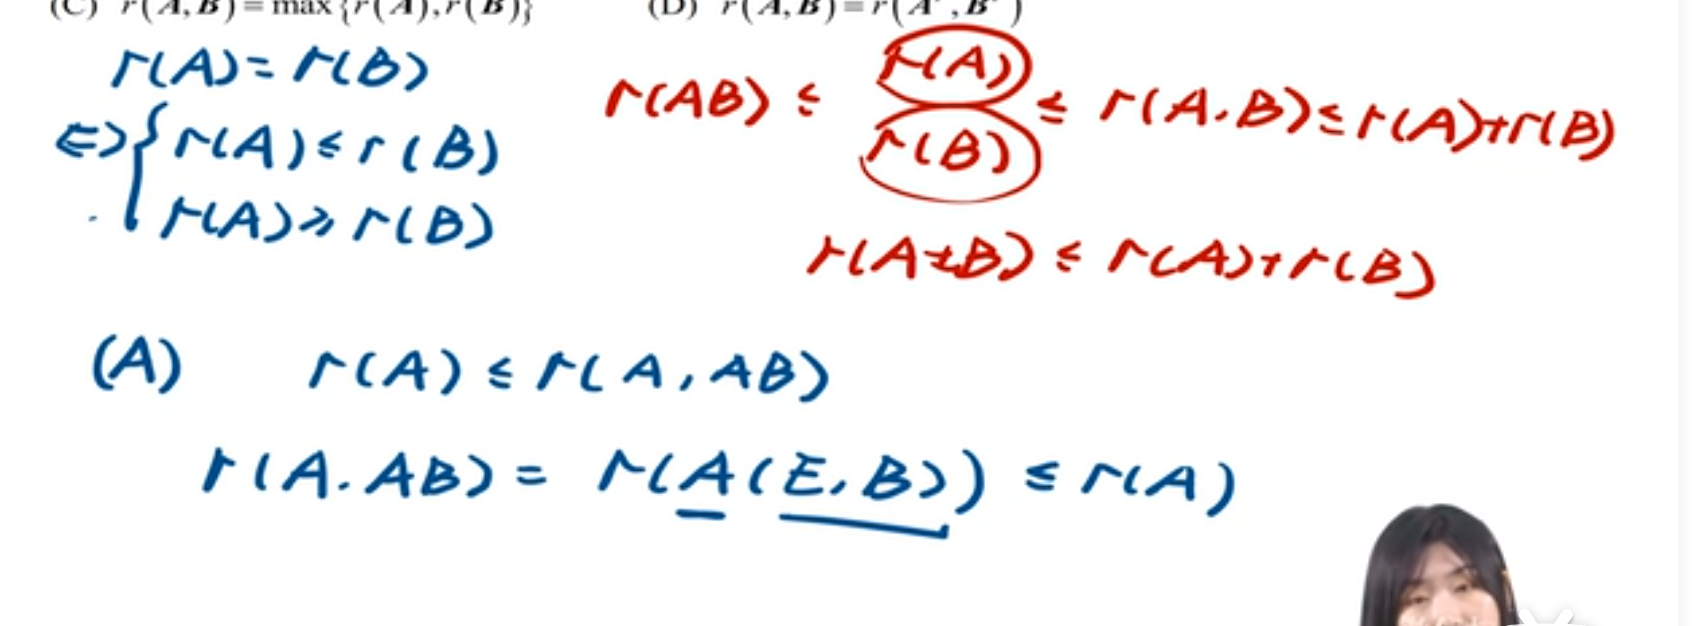 (C) r(A,B)=max{r(A),r(B)} (D) r(A,B)=r(Aᵀ,Bᵀ)
r(A)=r(B)
⇔{r(A)≤r(B)
r(A)≥r(B)
r(AB)≤ r(A) ≤r(A.B)≤r(A)+r(B)
r(B)
r(A±B)≤r(A)+r(B)
(A) r(A)≤r(A,AB)
r(A.AB)=r(A(E,B))≤r(A)